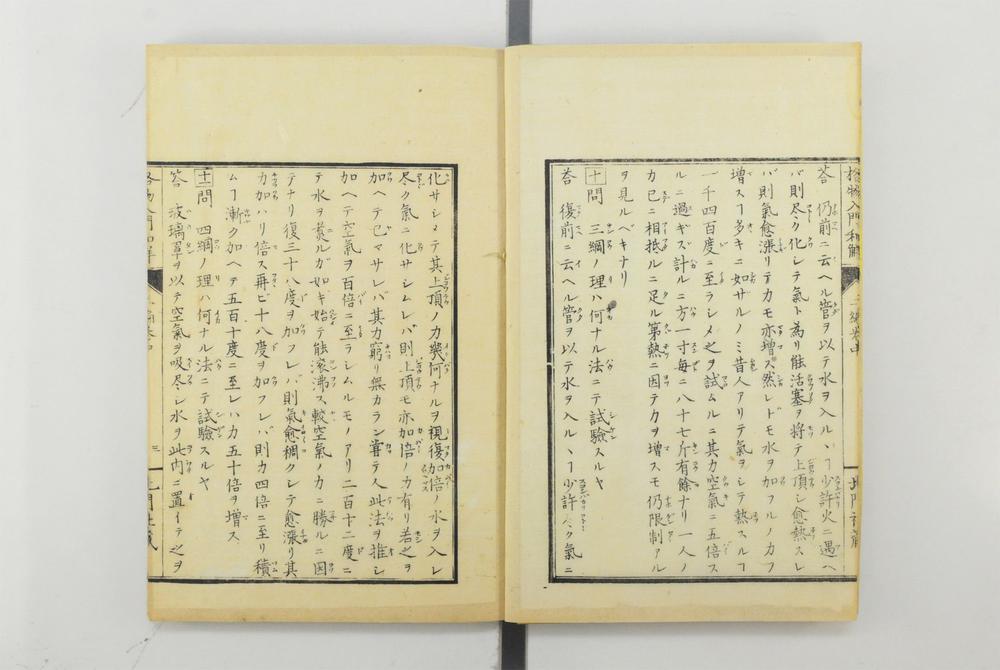 格物入門和解
答 仍前ニ云ヘル管ヲ以テ水ヲ入ルヽヿ少許火ニ遇ヘ
バ則尽ク化シテ氣ト為リ能活塞ヲ将テ上頂シ愈熱スレ
バ則氣愈漲リテ力モ亦増ス然レドモ水ヲ加フルノ力フ
増スヿ多キニ如サルノミ昔人アリテ氣ヲシテ熱スルヿ
一千四百度ニ至ラシメ之ヲ試ムルニ其力空氣ニ五倍ス
ルニ過ギズ計ルニ方一寸毎ニ八十七斤有餘ナリ一人ノ
力已ニ相抵ルニ足ル第熱ニ因テ力ヲ増スモ仍限制アル
ヲ見ルベキナリ
十問 三綱ノ理ハ何ナル法ニテ試驗スルヤ
答 復前ニ云ヘル管ヲ以テ水ヲ入ルヽヿ少許尽ク氣ニ
化サシメテ其上頂ノ力幾何ナルヲ視復加倍ノ水ヲ入レ
尽ク氣ニ化サシムレバ則上頂モ亦加倍ノ力有リ若之ヲ
加ヘテ已マサレバ其力窮リ無カラン嘗テ人此法ヲ推シ
加ヘテ空氣ヲ百倍ニ至ラシムルモノアリ二百十二度ニ
テ水ヲ煮ルガ如キ始テ能滾沸ス較空氣ノ力ニ勝ルニ因
テナリ復三十八度ヲ加フレバ則氣愈稠クシテ愈漲リ其
力加ハリ倍ス再ビ十八度ヲ加フレバ則力四倍ニ至リ積
ムヿ漸ク加ヘテ五百十度ニ至レハ力五十倍ヲ増ス
十一問 四綱ノ理ハ何ナル法ニテ試驗スルヤ
答 玻璃罩ヲ以テ空氣ヲ吸尽シ水ヲ此内ニ置イテ之ヲ